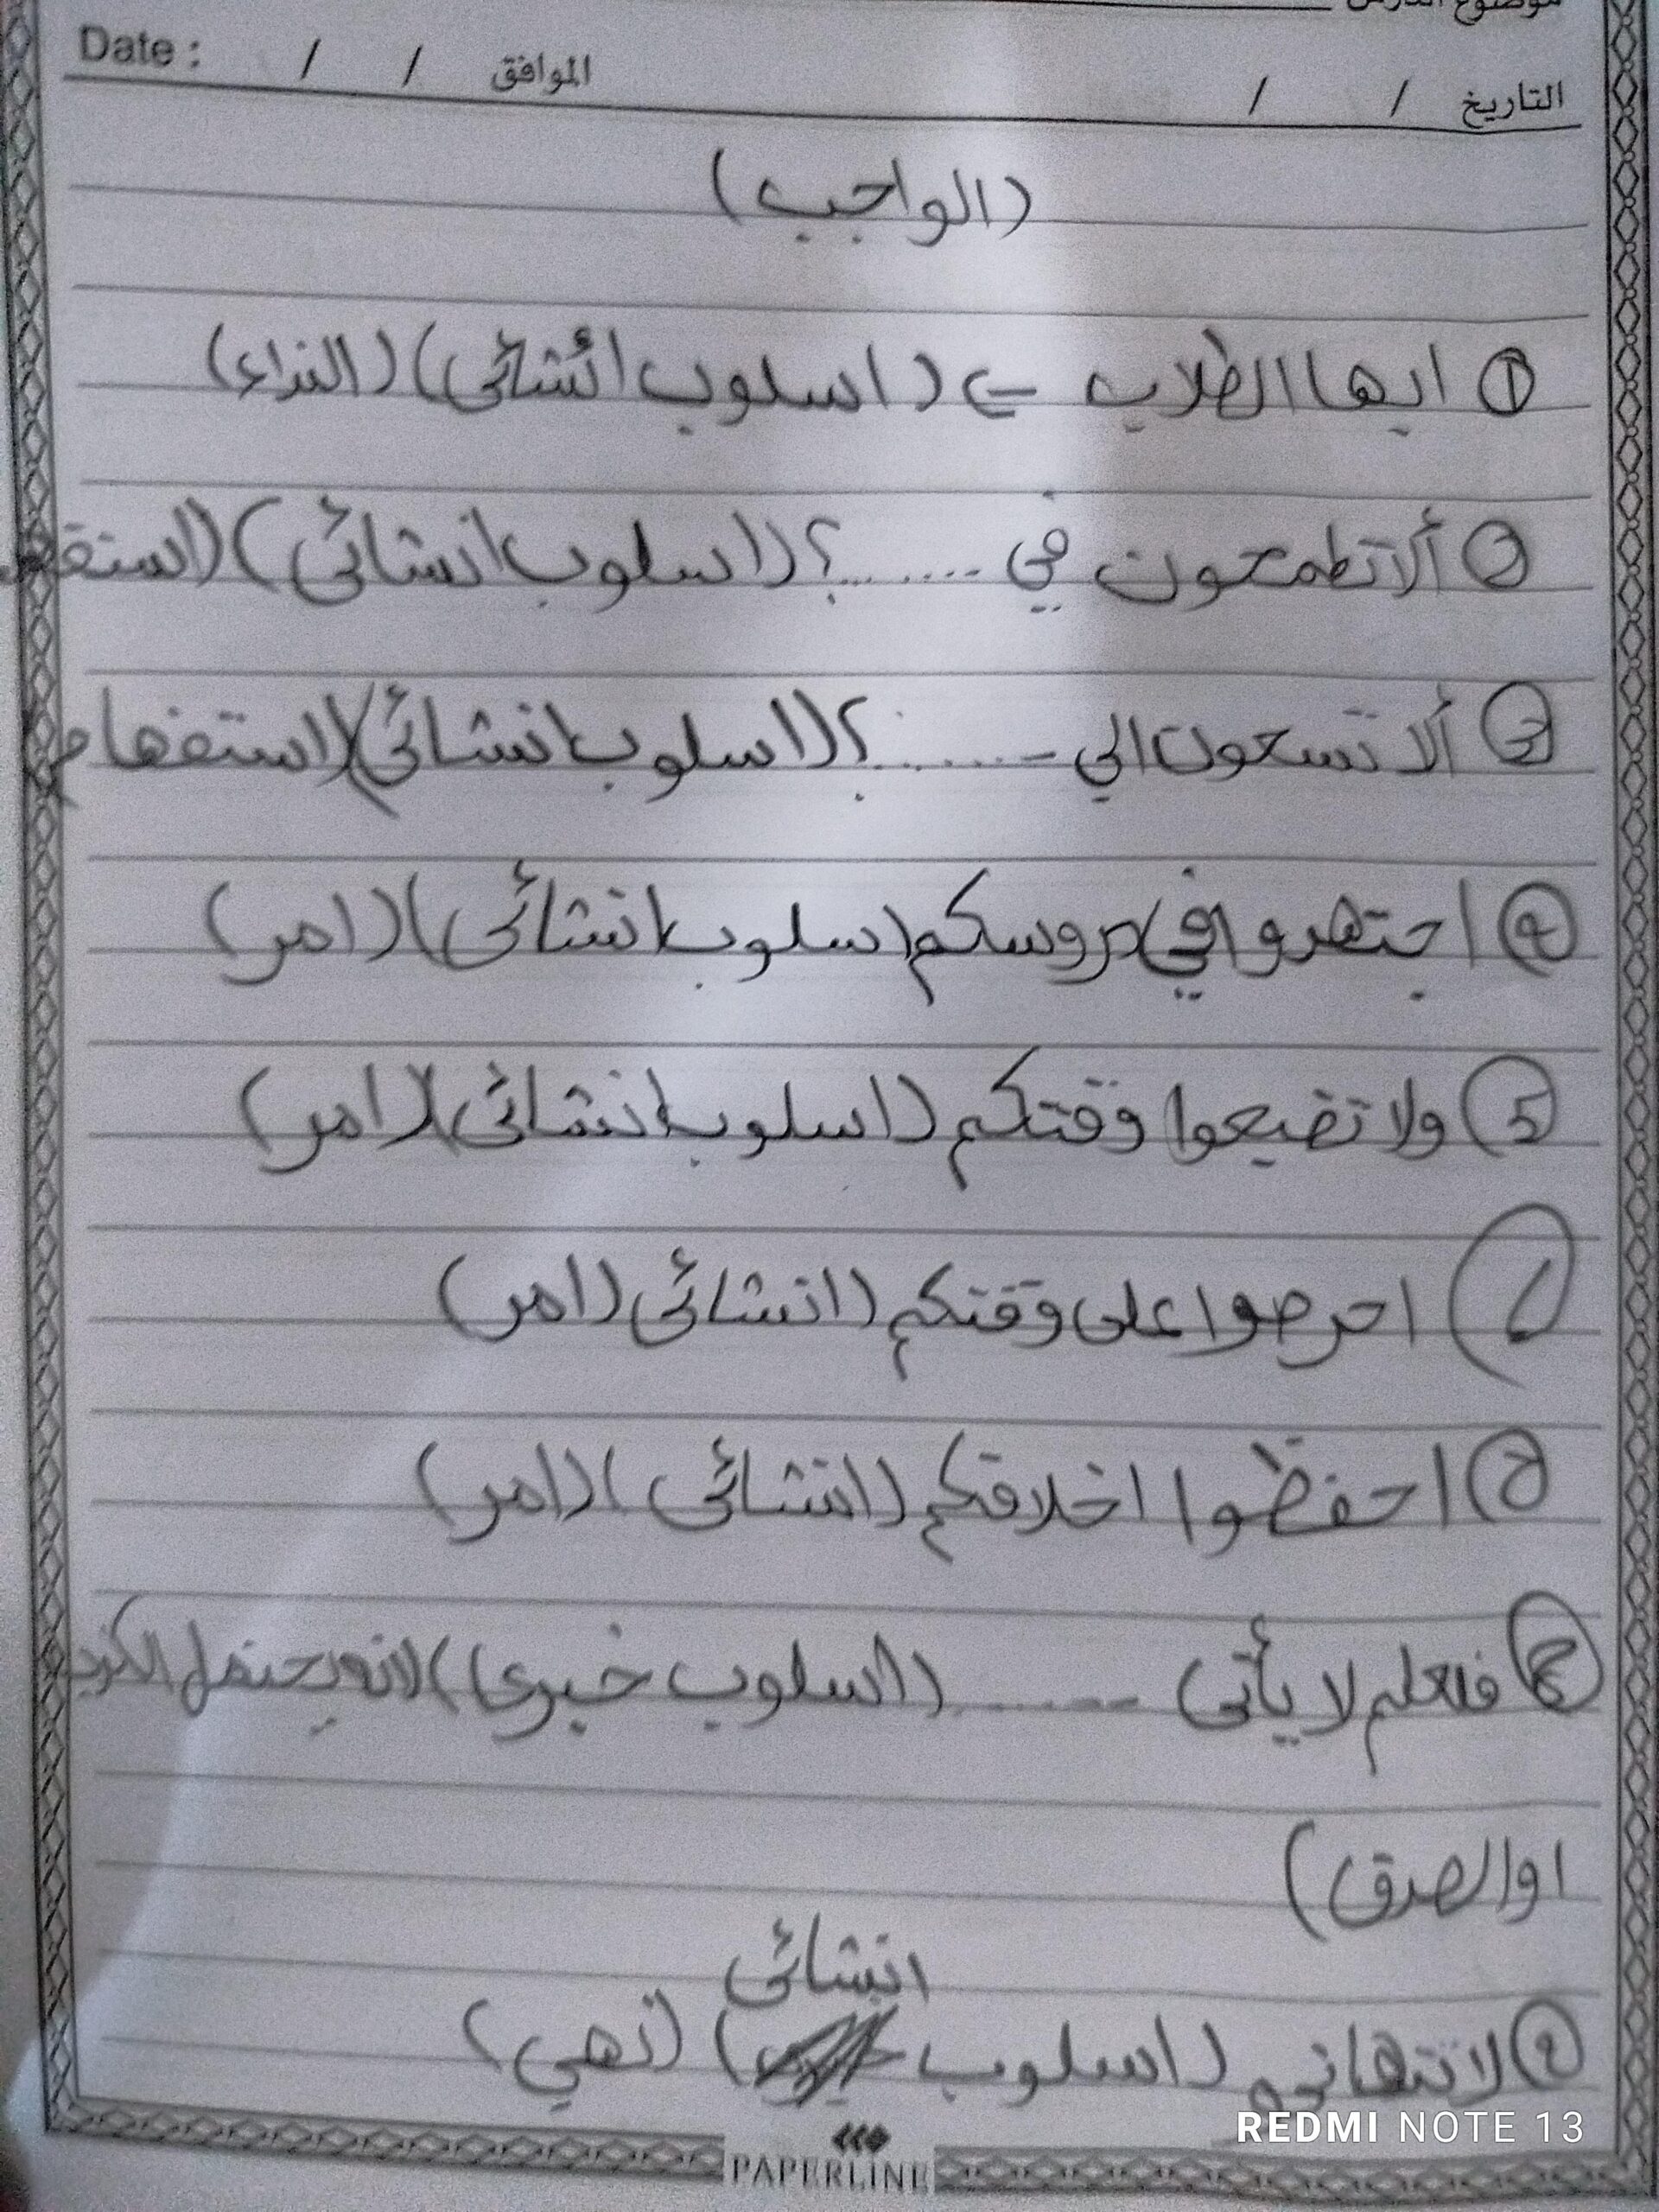 موضوع الدرس
التاريخ / / الموافق / / Date :
(الواجب)
① ايها الطلاب => (اسلوب انشائى) (النداء)
② ألا تطمعون في ......؟ (اسلوب انشائى) (استفه
③ ألا تسعون الي ......؟ (اسلوب انشائى) (استفهام
④ اجتهدوا في دروسكم (اسلوب انشائى) (امر)
⑤ ولا تضيعوا وقتكم (اسلوب انشائى) (امر)
احرصوا على وقتكم (انشائى) (امر)
احفظوا اخلاقكم (انشائى) (امر)
⑧ فلعلم لا يأتى ...... (اسلوب خبرى) (لانه يحتمل الكذب
او الصدق)
انشائى
⑨ لا تتهانوه (اسلوب) (نهي)
PAPERLINE
REDMI NOTE 13